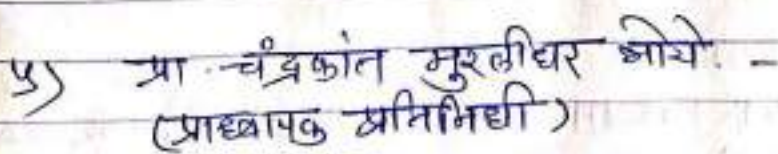 ५) प्रा. चंद्रकांत मुरलीधर -
(प्राध्यापक प्रतिनिधी)